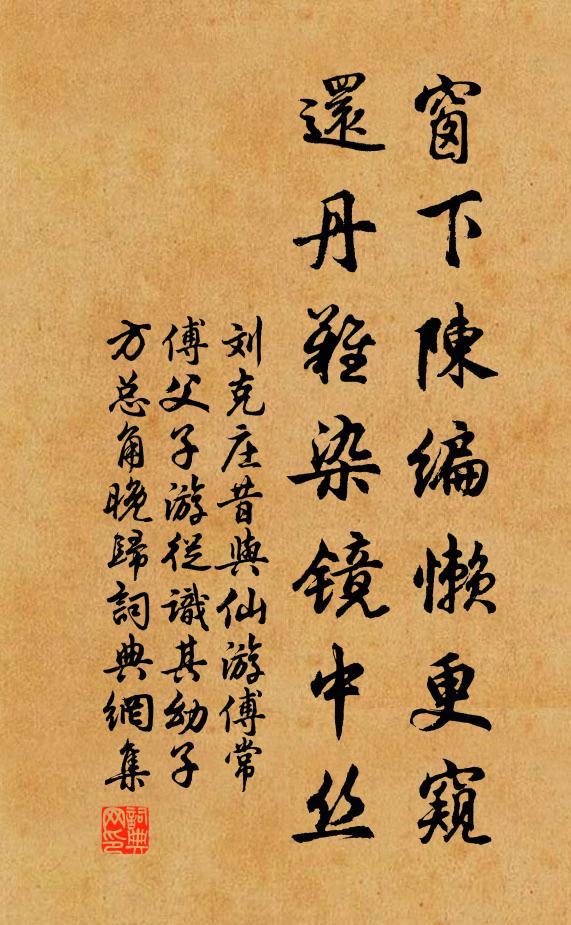 窗下陳編懶更窺
還丹難染镜中丝
刘克庄昔與仙游傅常
傅父子游從識其幼子
方总角晚歸詞典網集
詞典网印